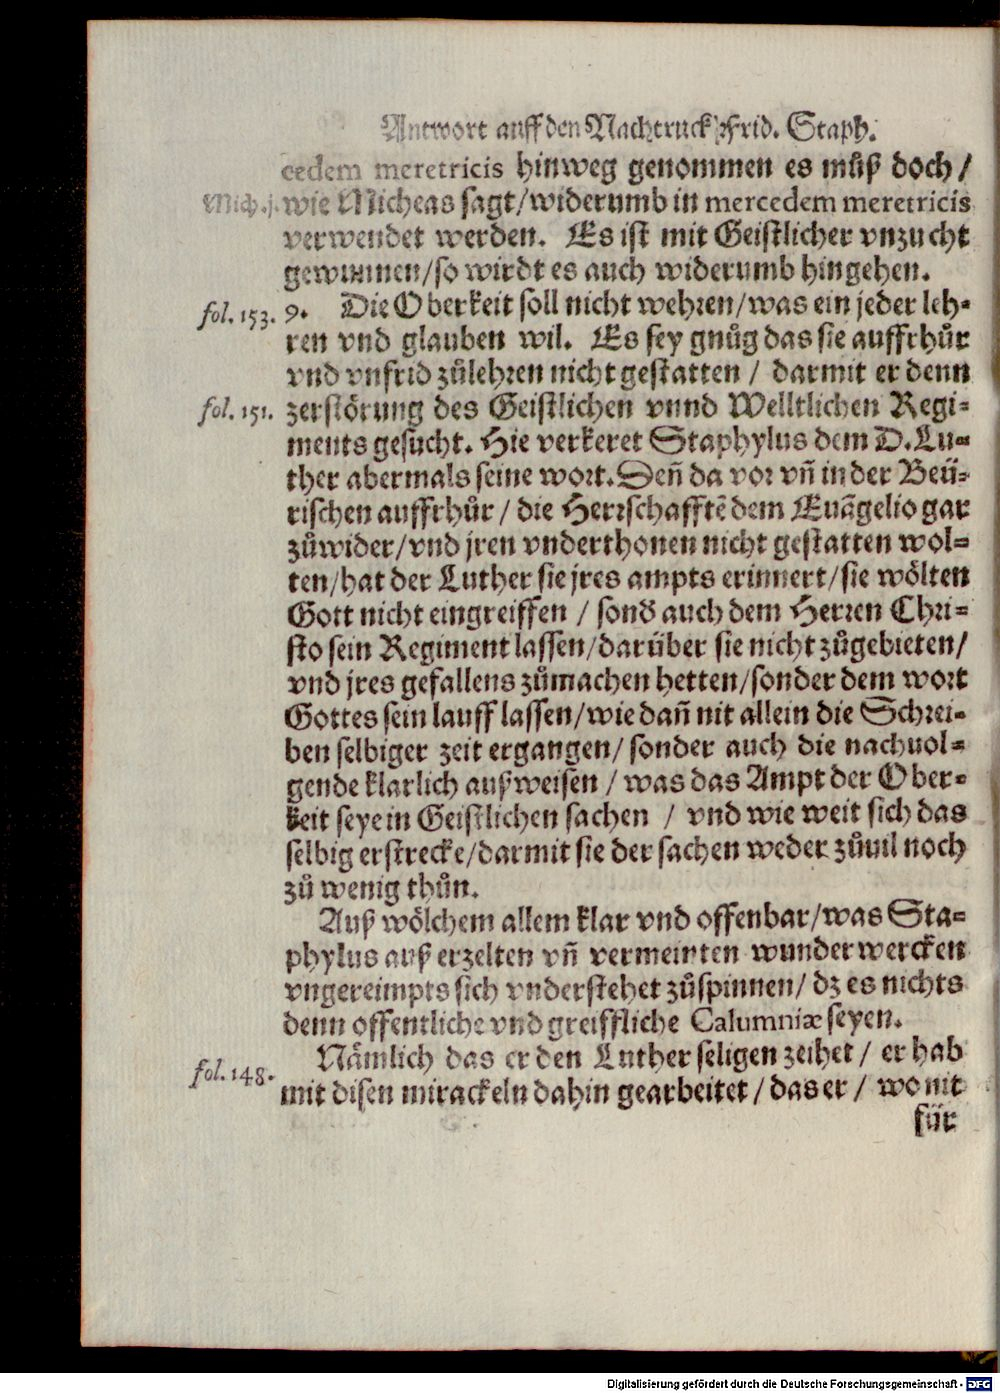 Antwort auff den Nachtruck Frid. Staph.
cedem meretricis hinweg genommen es můß doch/
Mich. j. wie Micheas sagt/widerumb in mercedem meretricis
verwendet werden. Es ist mit Geistlicher vnzucht
gewunnen/so wirdt es auch widerumb hingehen.
fol. 153. 9. Die Oberkeit soll nicht wehren/was ein jeder leh-
ren vnd glauben wil. Es sey gnůg das sie auffrhůr
vnd vnfrid zůlehren nicht gestatten / darmit er denn
fol. 151. zerstörung des Geistlichen vnnd Welltlichen Regi-
ments gesucht. Hie verkeret Staphylus dem D. Lu-
ther abermals seine wort. Deñ da vor vñ in der Beü-
rischen auffrhůr / die Herrschafftẽ dem Euãgelio gar
zůwider/vnd jren vnderthonen nicht gestatten wol-
ten/hat der Luther sie jres ampts erinnert/sie wölten
Gott nicht eingreiffen / sond̕ auch dem Herren Chri-
sto sein Regiment lassen/darüber sie nicht zůgebieten/
vnd jres gefallens zůmachen hetten/sonder dem wort
Gottes sein lauff lassen/wie dañ nit allein die Schrei-
ben selbiger zeit ergangen/ sonder auch die nachuol-
gende klarlich außweisen / was das Ampt der Ober-
keit seye in Geistlichen sachen / vnd wie weit sich das
selbig erstrecke/darmit sie der sachen weder zůuil noch
zů wenig thůn.
Auß wölchem allem klar vnd offenbar/was Sta-
phylus auß erzelten vñ vermeinten wunderwercken
vngereimpts sich vnderstehet zůspinnen/ dz es nichts
denn offentliche vnd greiffliche Calumniæ seyen.
Nämlich das er den Luther seligen zeihet / er hab
fol. 148. mit disen mirackeln dahin gearbeitet / das er / wo nit
für
Digitalisierung gefördert durch die Deutsche Forschungsgemeinschaft - DFG